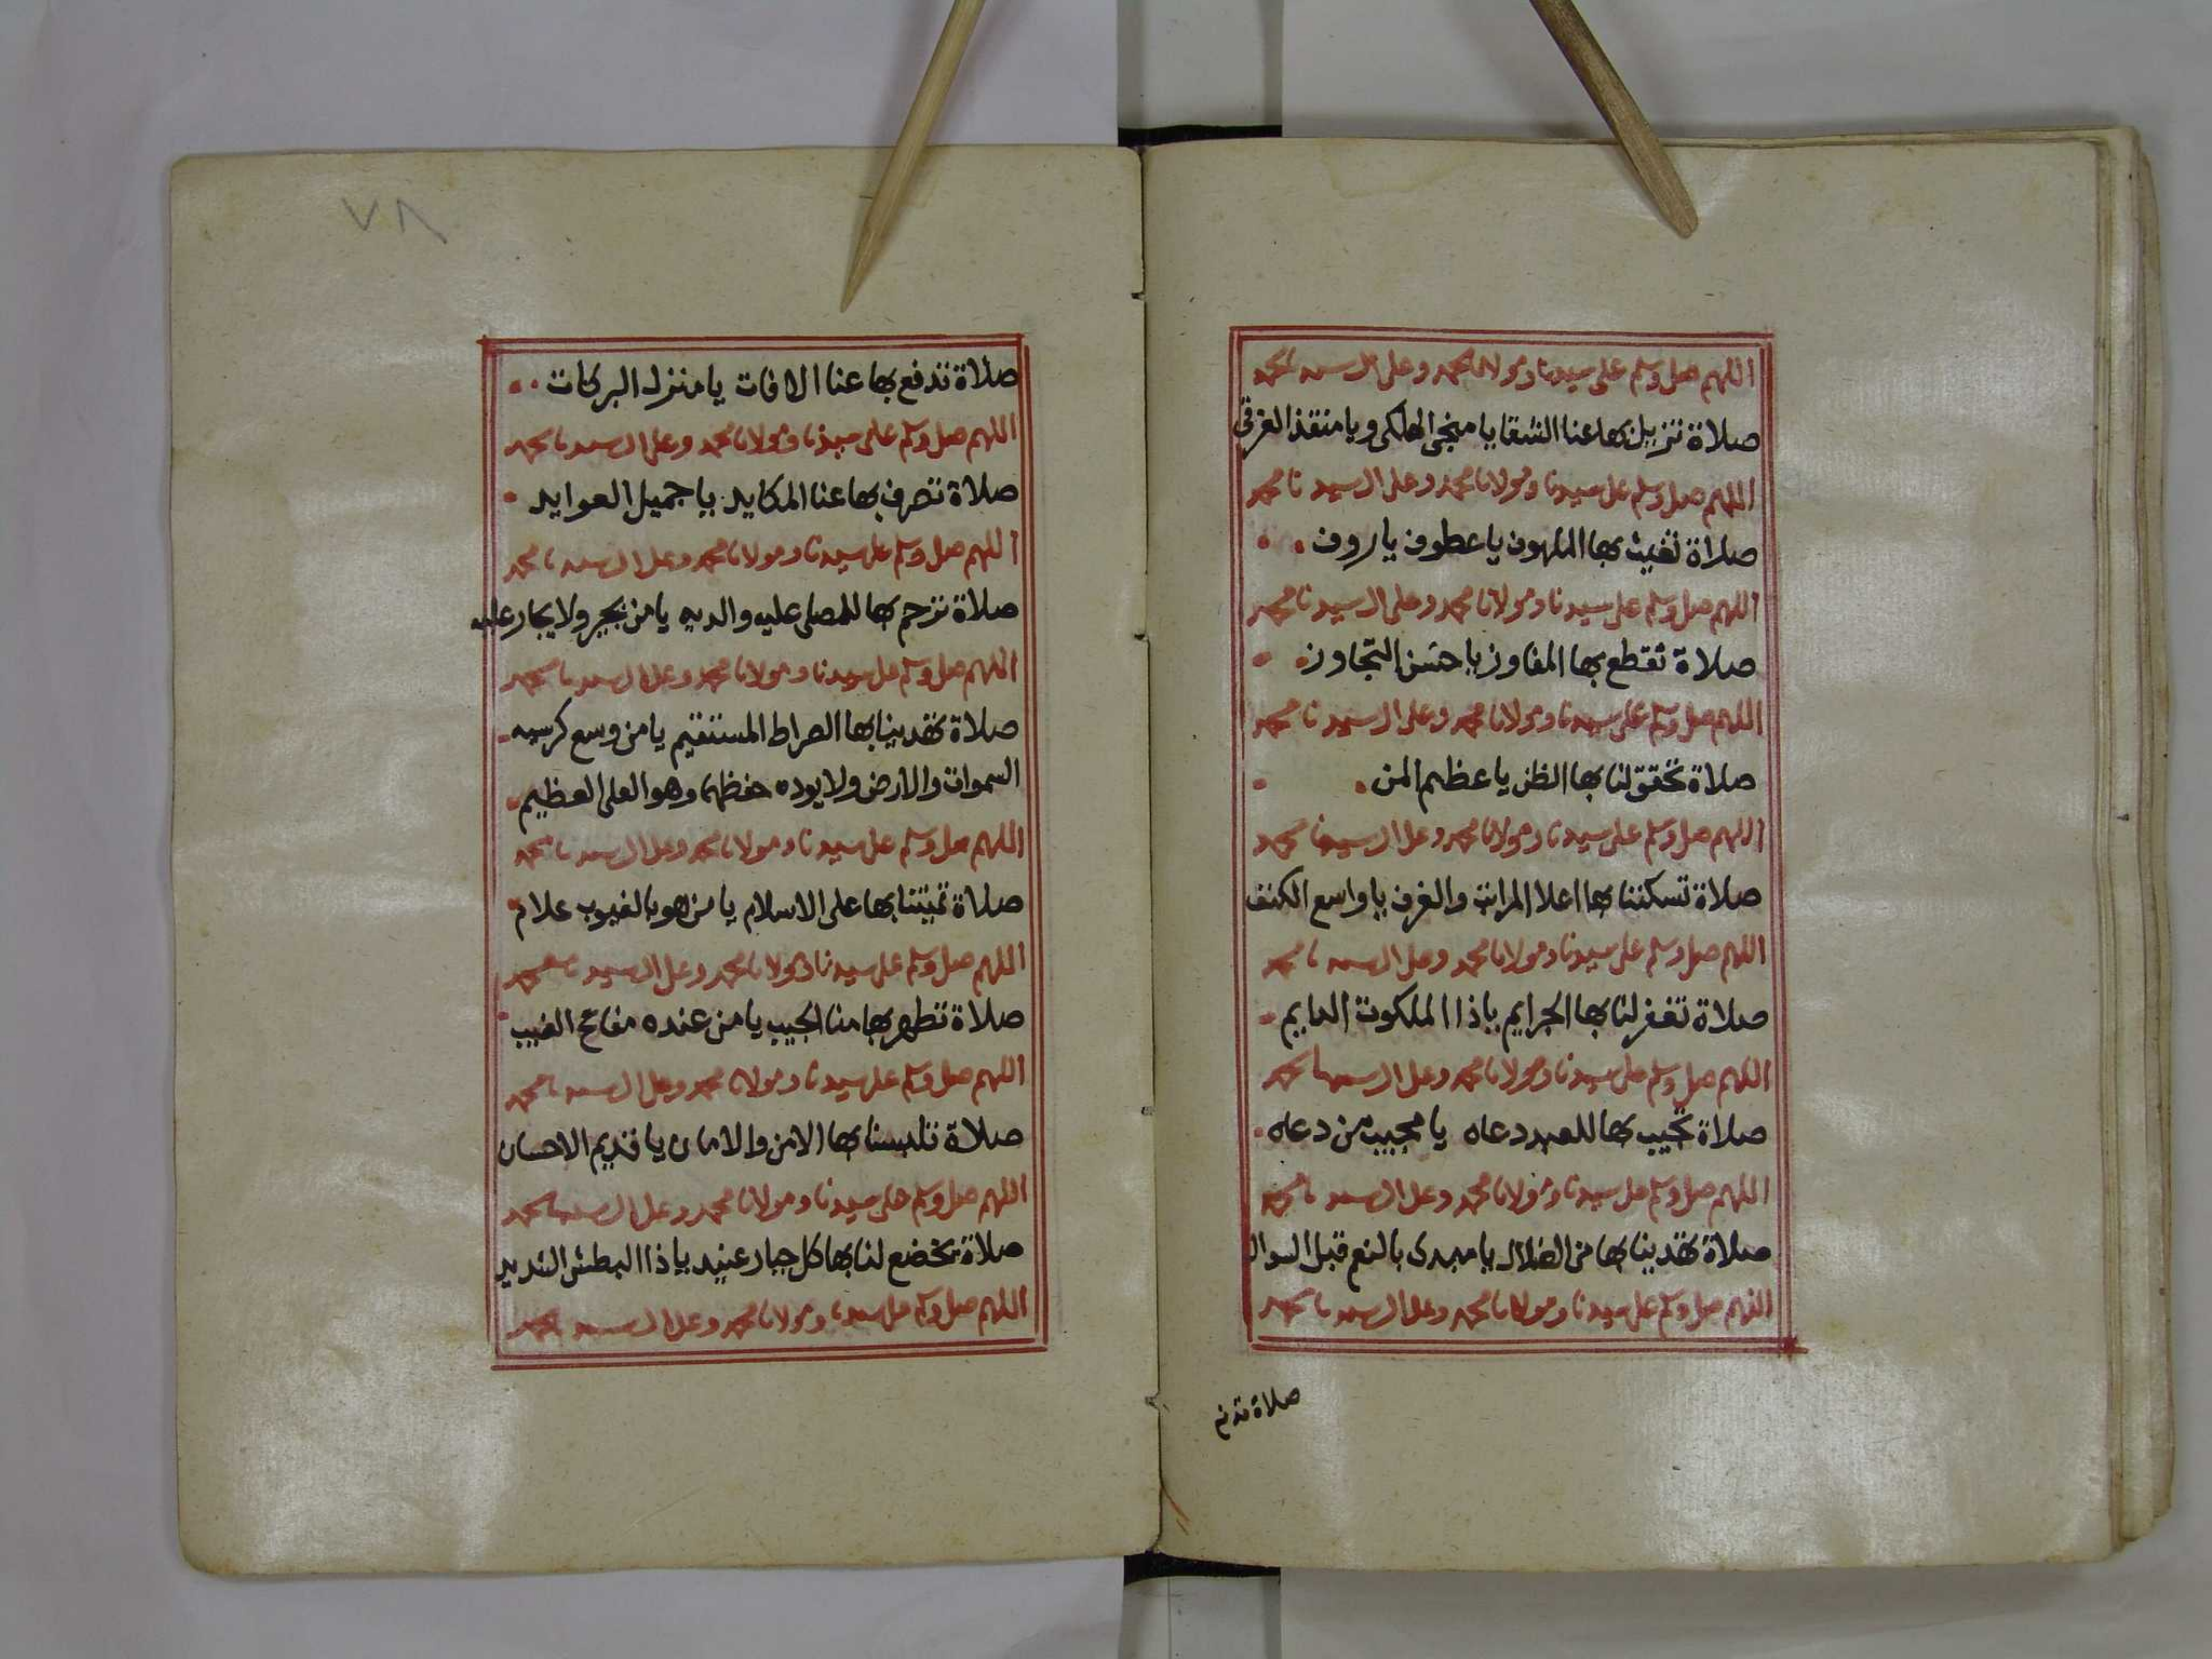 اللهم صل وسلم على سيدنا ومولانا محمد وعلى ال سيدنا محمد
صلاة تزيل بها عنا الشقا يا منجى الهلكى ويا منقذ الغرقى
اللهم صل وسلم على سيدنا ومولانا محمد وعلى ال سيدنا محمد
صلاة تغيث بها الملهوف يا عطوف يا روف
اللهم صل وسلم على سيدنا ومولانا محمد وعلى ال سيدنا محمد
صلاة تقطع بها المفاوز يا حسن التجاوز
اللهم صل وسلم على سيدنا ومولانا محمد وعلى ال سيدنا محمد
صلاة تحقق لنا بها الظن يا عظيم المن
اللهم صل وسلم على سيدنا ومولانا محمد وعلى ال سيدنا محمد
صلاة تسكننا بها اعلا المراتب والغرف يا واسع الكنف
اللهم صل وسلم على سيدنا ومولانا محمد وعلى ال سيدنا محمد
صلاة تغفر لنا بها الجرايم يا ذا الملكوت الدايم
اللهم صل وسلم على سيدنا ومولانا محمد وعلى ال سيدنا محمد
صلاة تجيب بها للعبد دعاه يا مجيب من دعاه
اللهم صل وسلم على سيدنا ومولانا محمد وعلى ال سيدنا محمد
صلاة تهدينا بها من الضلال يا مبدى بالنعم قبل السوال
اللهم صل وسلم على سيدنا ومولانا محمد وعلى ال سيدنا محمد
صلاة تدفع
٧٨
صلاة تدفع بها عنا الافات يا منزل البركات
اللهم صل وسلم على سيدنا ومولانا محمد وعلى ال سيدنا محمد
صلاة تصرف بها عنا المكايد يا جميل العوايد
اللهم صل وسلم على سيدنا ومولانا محمد وعلى ال سيدنا محمد
صلاة ترحم بها للمصلى عليه والديه يا من يجير ولا يجار عليه
اللهم صل وسلم على سيدنا ومولانا محمد وعلى ال سيدنا محمد
صلاة تهدينا بها الصراط المستقيم يا من وسع كرسيه
السموات والارض ولا يوده حفظهما وهو العلى العظيم
اللهم صل وسلم على سيدنا ومولانا محمد وعلى ال سيدنا محمد
صلاة تميتنا بها على الاسلام يا من هو بالغيوب علام
اللهم صل وسلم على سيدنا ومولانا محمد وعلى ال سيدنا محمد
صلاة تطهر بها منا الجيب يا من عنده مفاتح الغيب
اللهم صل وسلم على سيدنا ومولانا محمد وعلى ال سيدنا محمد
صلاة تلبسنا بها الامن والامان يا قديم الاحسان
اللهم صل وسلم على سيدنا ومولانا محمد وعلى ال سيدنا محمد
صلاة تخضع لنا بها كل جبار عنيد يا ذا البطش الشديد
اللهم صل وسلم على سيدنا ومولانا محمد وعلى ال سيدنا محمد